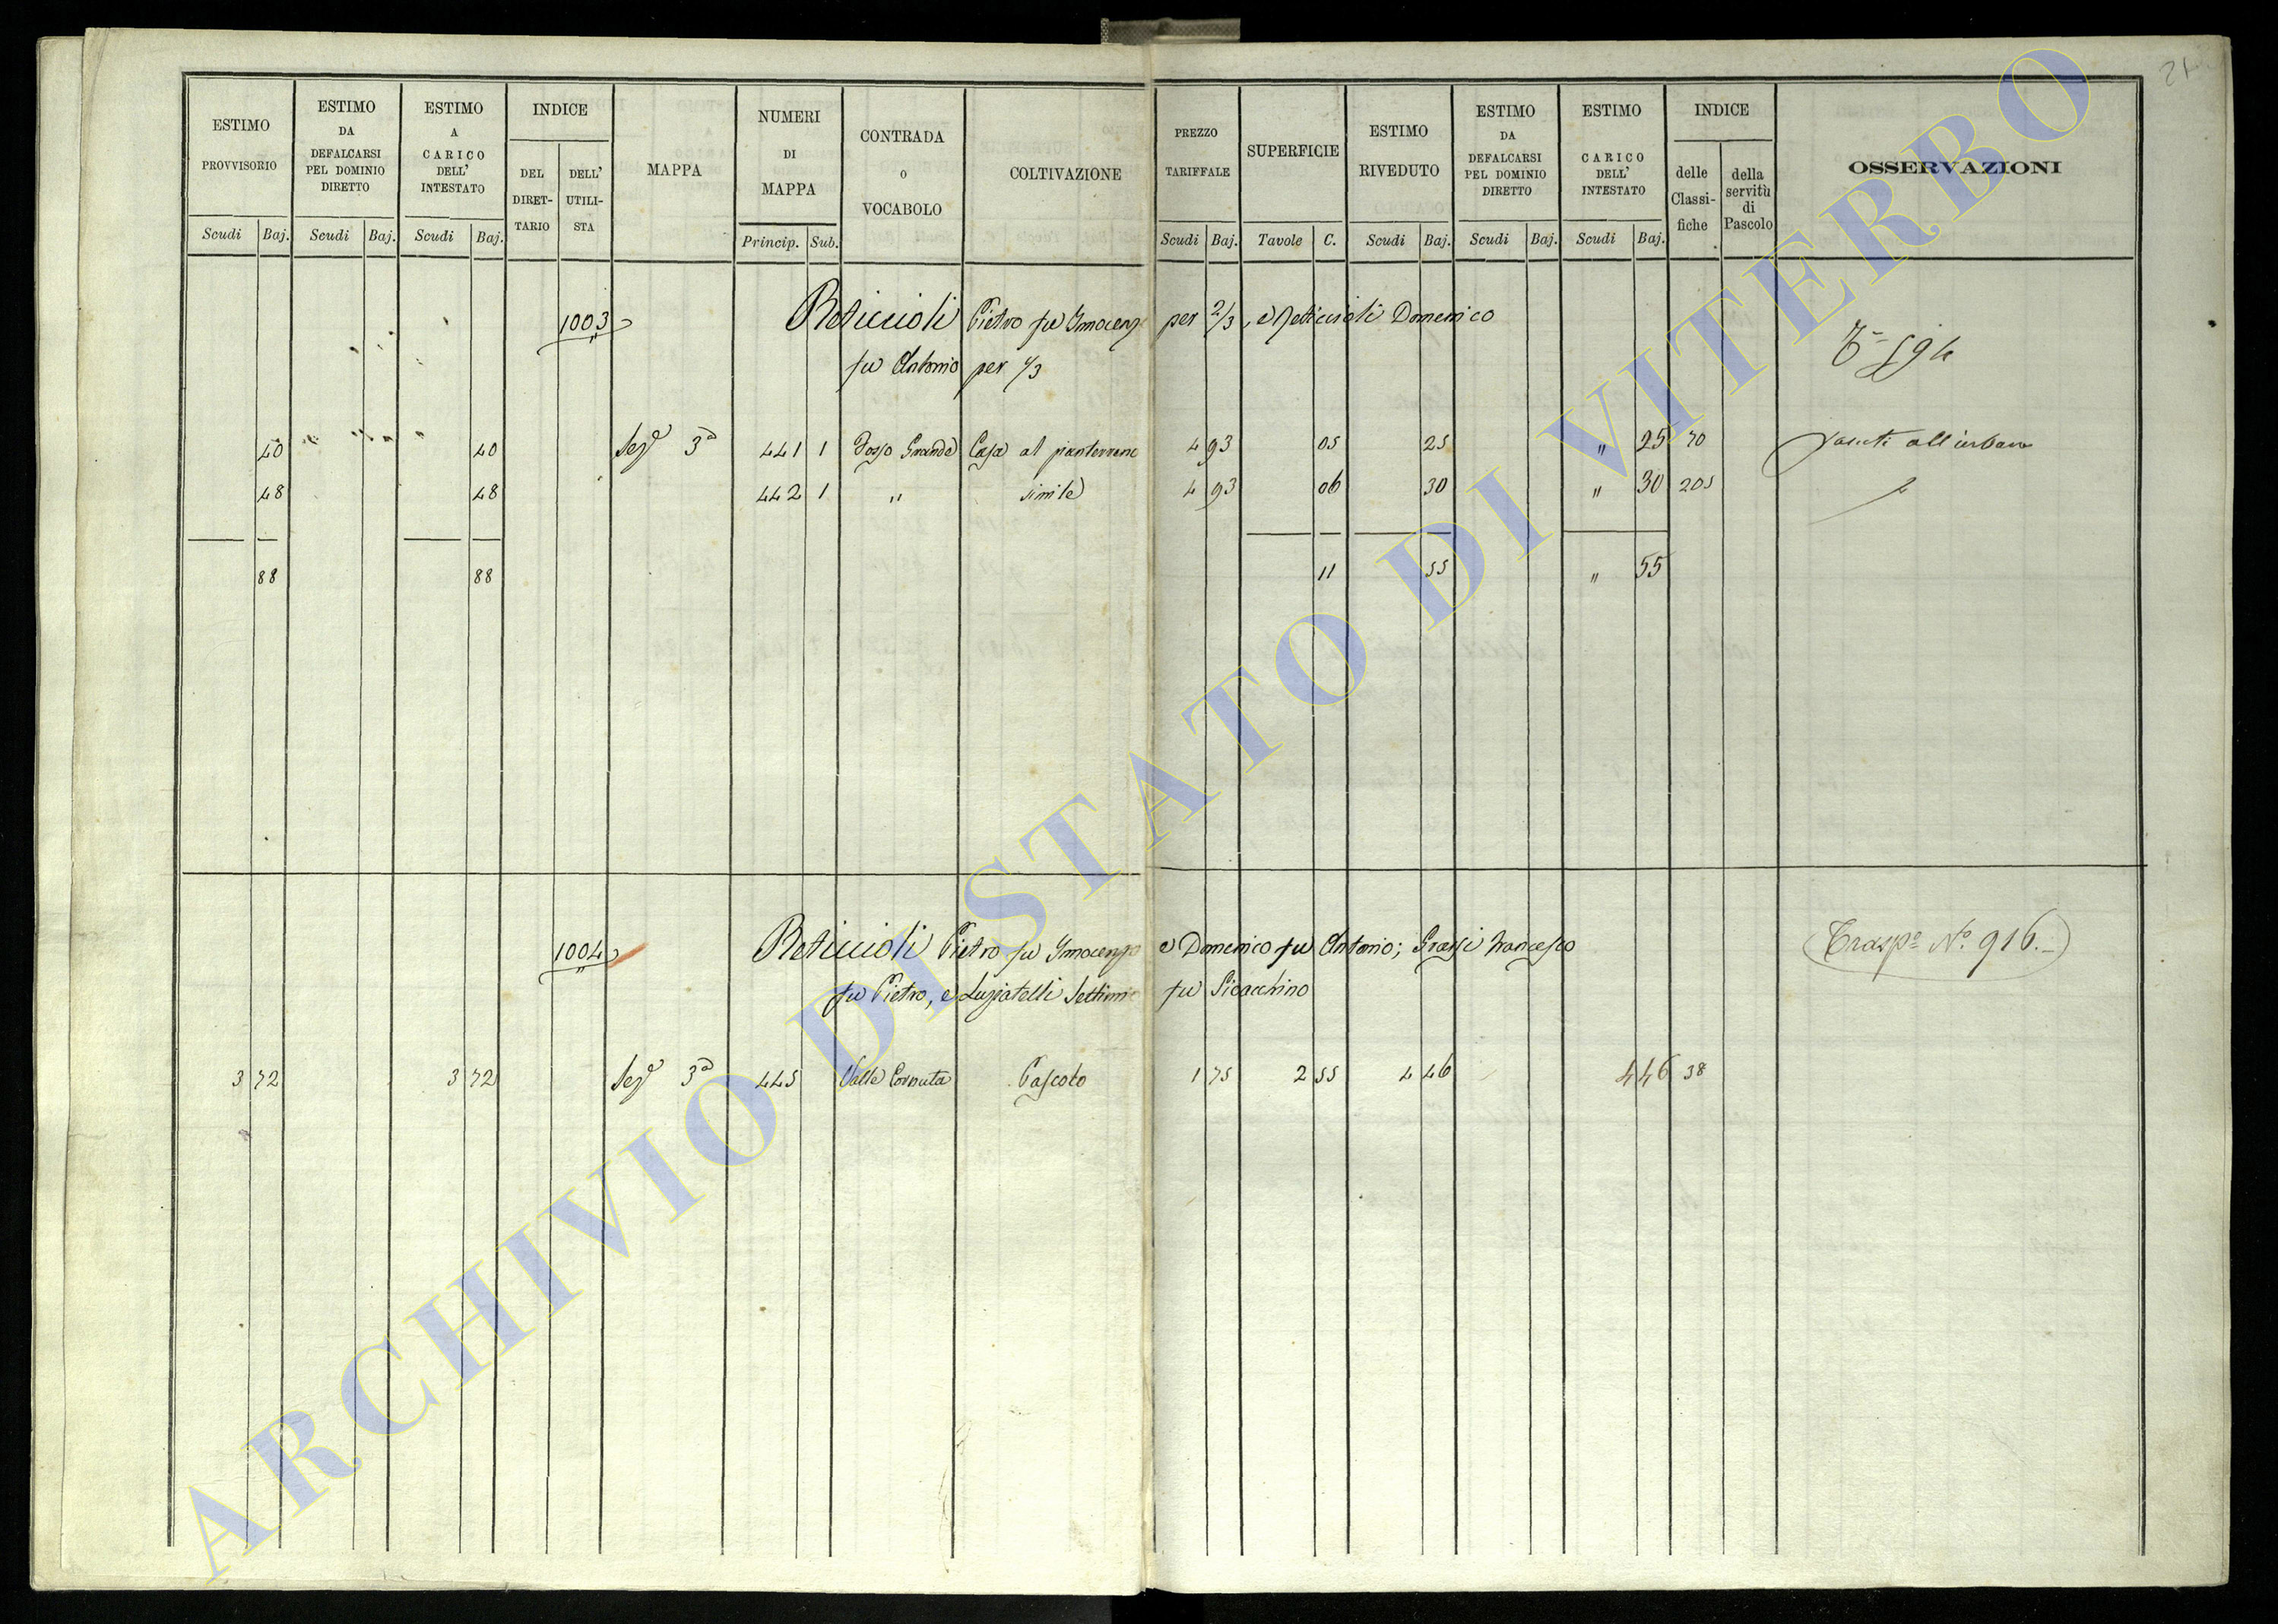 21
ESTIMO PROVVISORIO Scudi Baj.
ESTIMO DA DEFALCARSI PEL DOMINIO DIRETTO Scudi Baj.
ESTIMO A CARICO DELL' INTESTATO Scudi Baj.
INDICE DEL DIRET-TARIO DELL' UTILI-STA
MAPPA
NUMERI DI MAPPA Princip. Sub.
CONTRADA O VOCABOLO
COLTIVAZIONE
PREZZO TARIFFALE Scudi Baj.
SUPERFICIE Tavole C.
ESTIMO RIVEDUTO Scudi Baj.
ESTIMO DA DEFALCARSI PEL DOMINIO DIRETTO Scudi Baj.
ESTIMO A CARICO DELL' INTESTATO Scudi Baj.
INDICE delle Classi-fiche della servitù di Pascolo
OSSERVAZIONI
1003 Reticcioli Pietro fu Innocenzo per 2/3, e Reticcioli Domenico
fu Antonio per 1/3
40 40 Sezº 3ª 441 1 Fosso Grande Casa al pianterreno 4 93 05 25 " 25 70 all'urbano
48 48 442 1 " simile 4 93 06 30 " 30 205
88 88 11 55 " 55
1004 Reticcioli Pietro fu Innocenzo e Domenico fu Antonio; Grassi Francesco
fu Pietro, e Luziatelli Settimio fu Gioacchino
Traspº Nº 916.
3 72 3 72 Sezº 3ª 445 Valle Cornuta Pascolo 1 75 2 55 4 46 4 46 38
ARCHIVIO DI STATO DI VITERBO